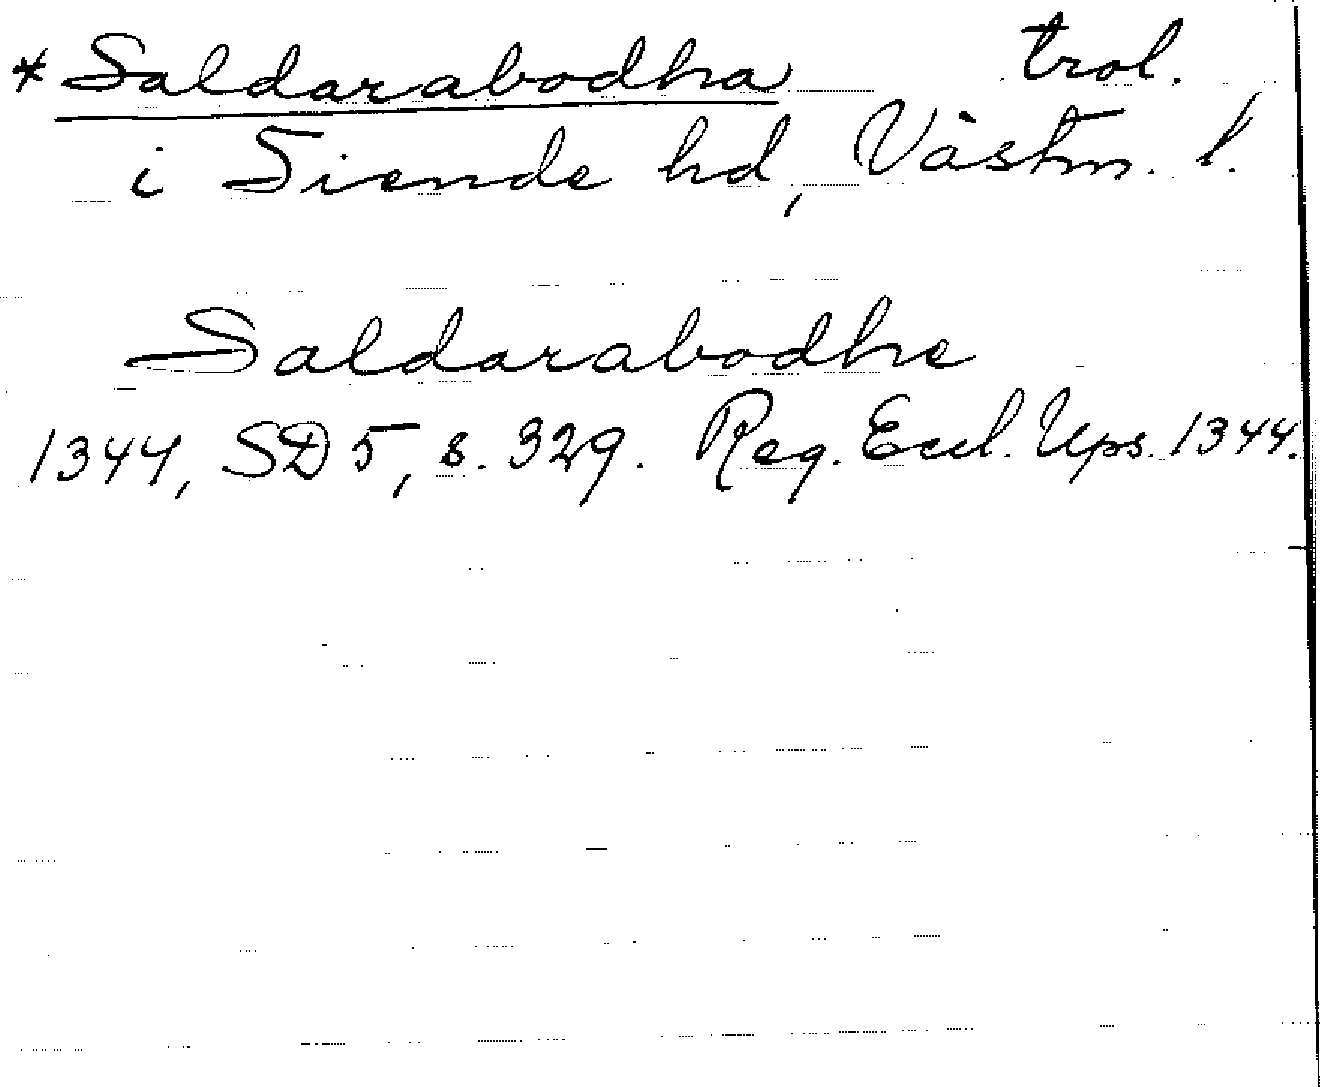 *Saldarabodha trol.
i Siende hd, Västm. l.
Saldarabodhe
1344, SD 5, s. 329. Reg. Eccl. Ups. 1344.